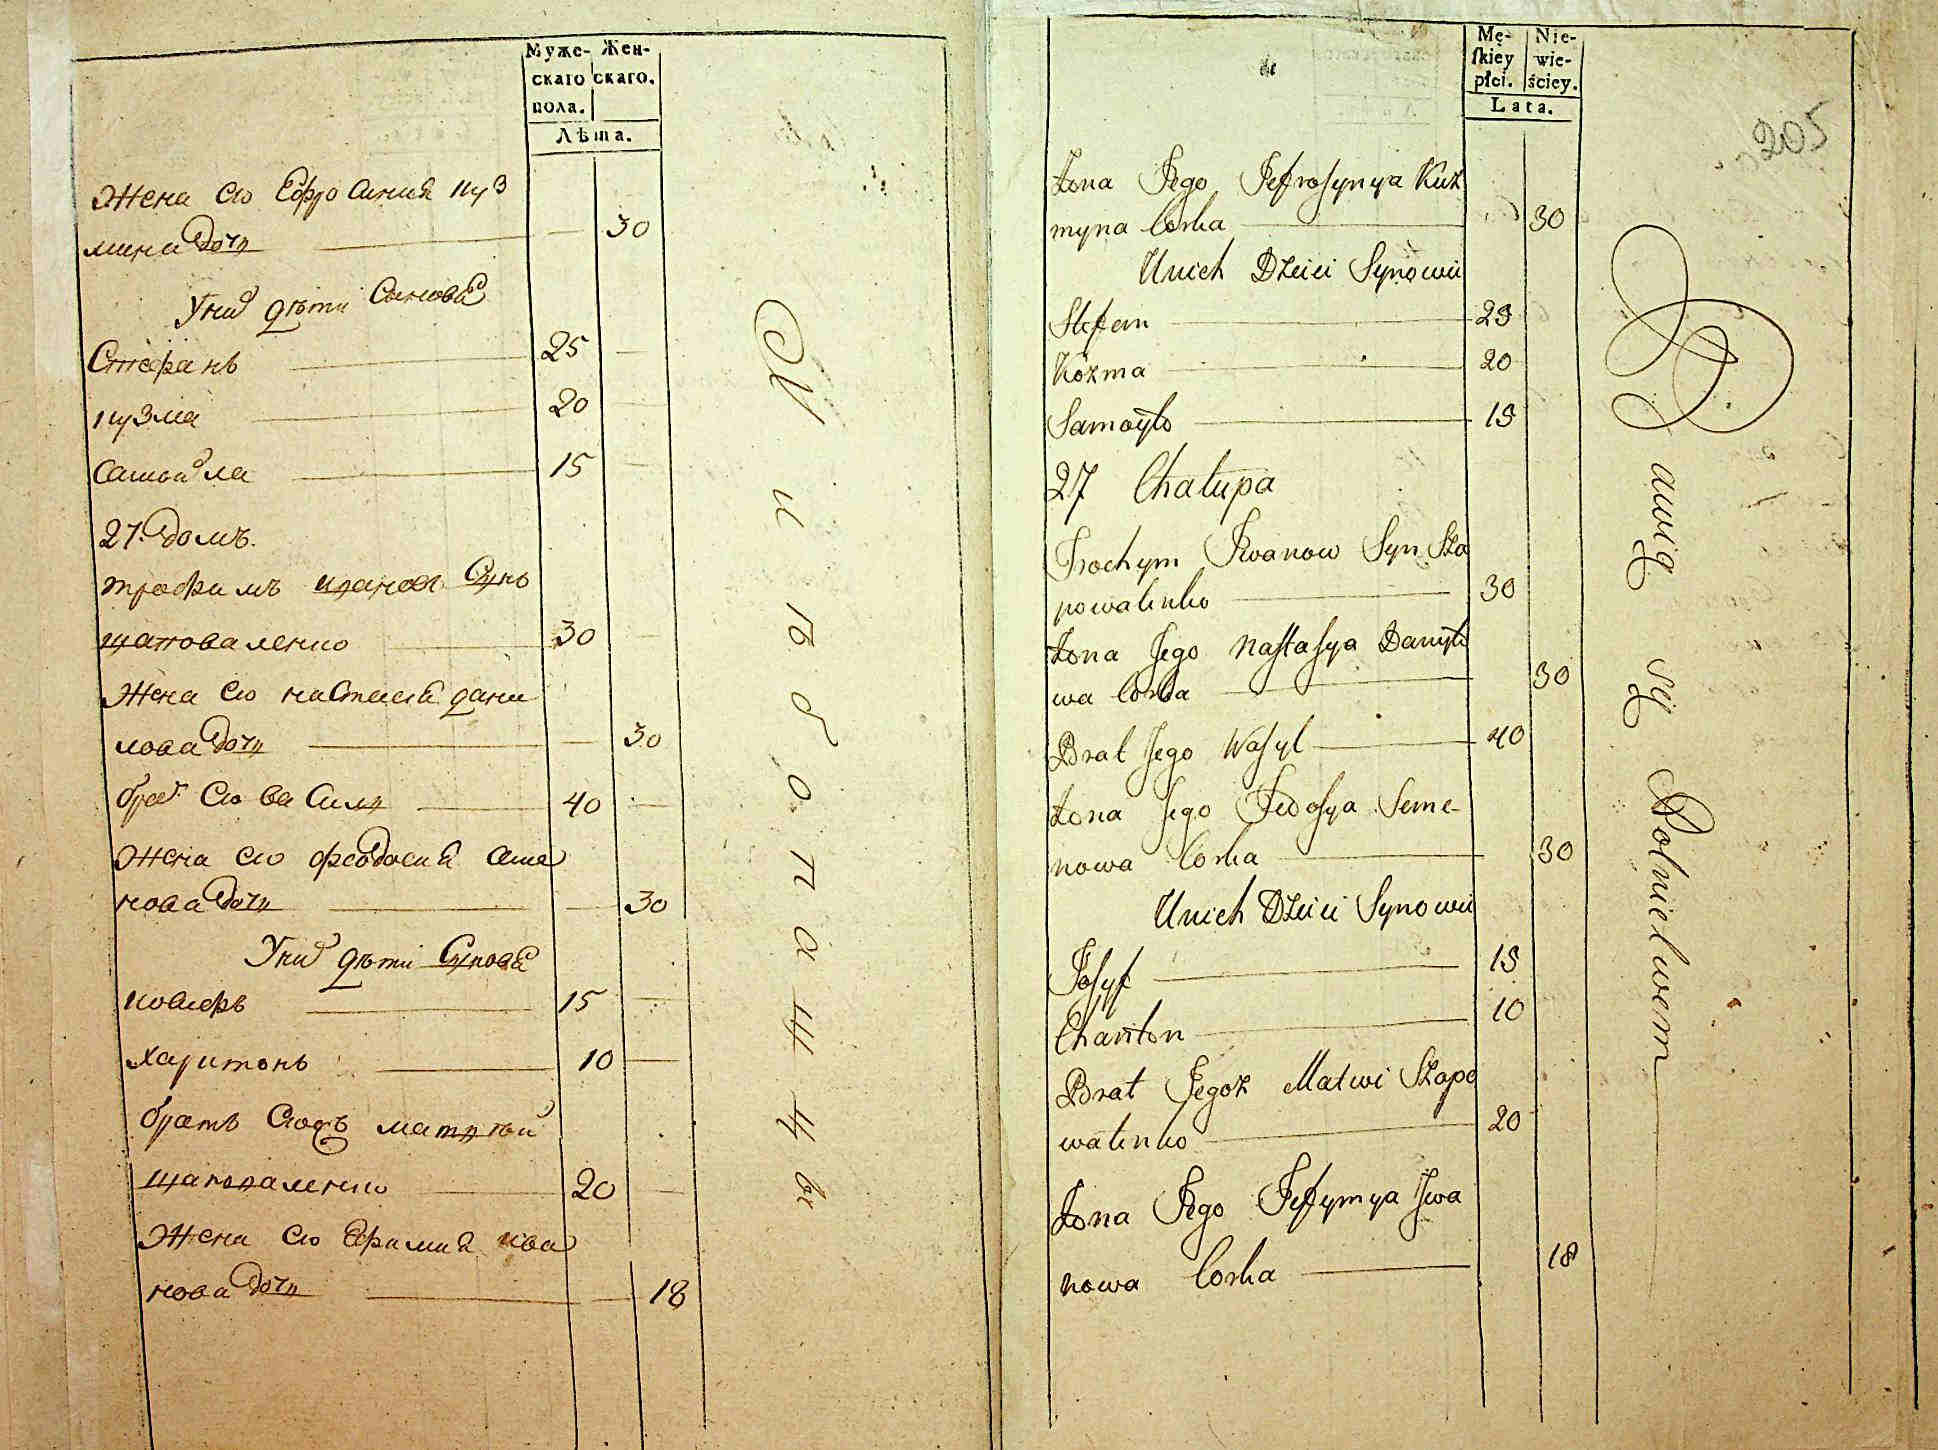 Муже- Жен-
скаго скаго.
пола.
Лѣта.
Жена его Ефросиния куз
мина дочь 30
У них дѣти Синове
Стефанъ 25
кузма 20
самойла 15
27. домъ.
трофимъ иванов сынъ
шаповаленко 30
Жена его настасия дани
лова дочь 30
брат его василь 40
Жена его феодосия семе
нова дочь 30
У них дѣти Синове
иосифъ 15
харитонъ 10
братъ егожъ матвѣй
шаповаленко 20
Жена его Ефимия ива
нова дочь 18
хлѣбопашцы
Mę- Nie-
skiey wie-
płci. ściey.
Lata.
205
Żona Jego Jefrosynya Kuz
myna Corka 30
Unich Dzieci Synowie
Stefan 25
Kozma 20
Samoyło 15
27 Chałupa
Trochym Iwanow Syn Sza
powalenko 30
Żona Jego Nastasya Daniło
wa Corka 30
Brat Jego Wasyl 40
Żona Jego Fedosya Seme-
nowa Corka 30
Unich Dzieci Synowie
Josyf 15
Chariton 10
Brat Jegoż Matwi Szapo
walenko 20
Żona Jego Jefymya Iwa
nowa Corka 18
Bawią się Rolnictwem